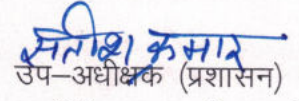 सतीश कुमार
उप–अधीक्षक (प्रशासन)